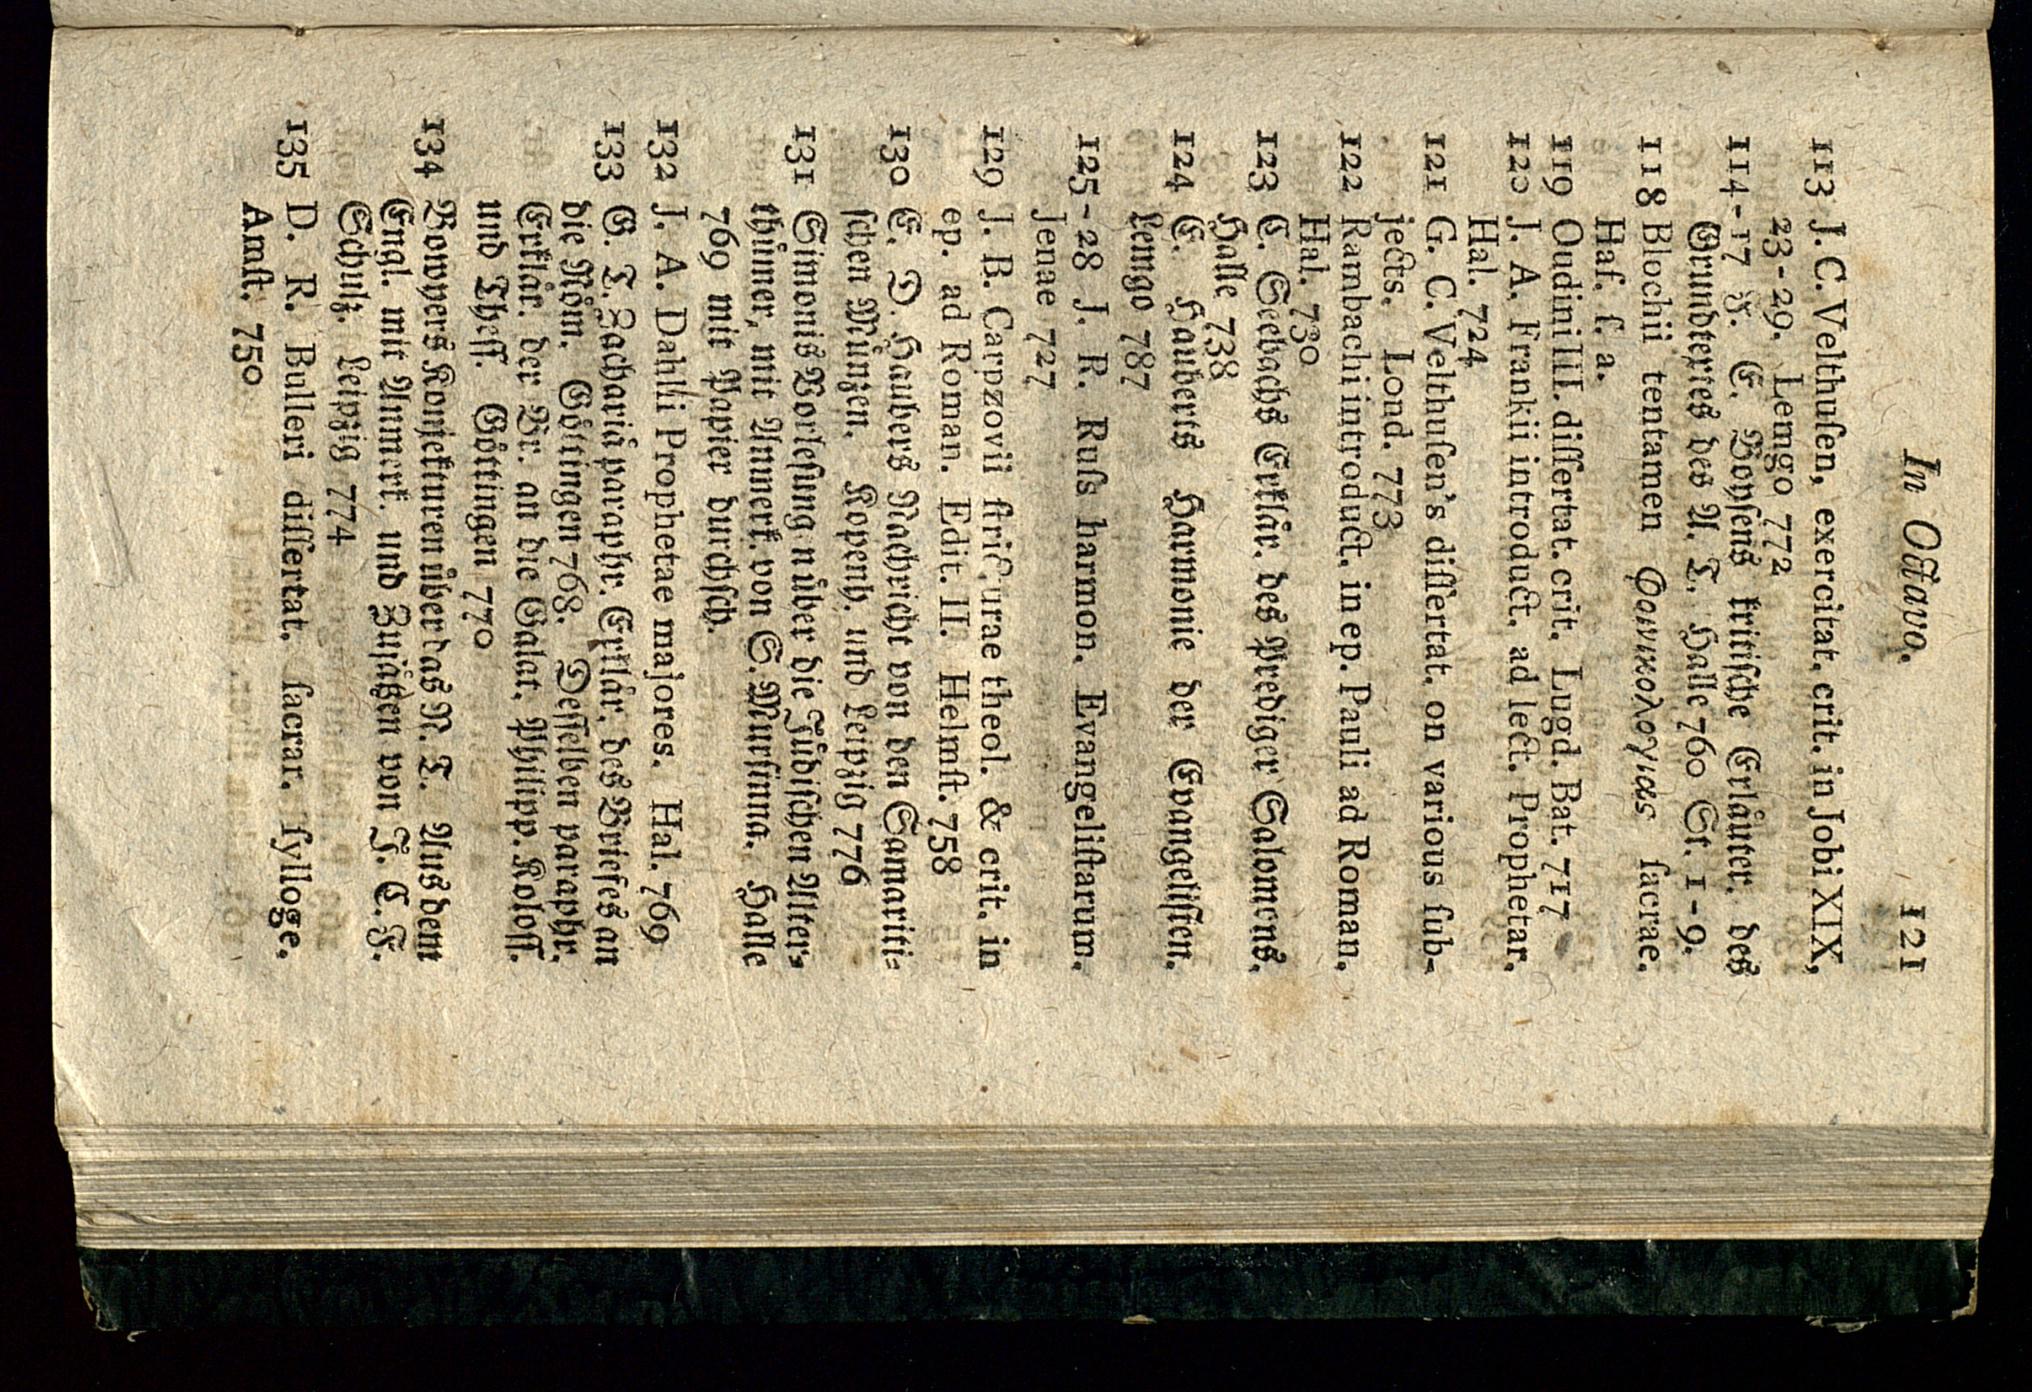 In Octavo. 121
113 J. C. Velthuſen, exercitat. crit. in Jobi XIX,
23-29. Lemgo 772
114-17 F. E. Boyſens kritiſche Erläuter. des
Grundtextes des A. T. Halle 760 St. 1-9.
118 Blochii tentamen Φοινικολογιας ſacrae.
Haf. ſ. a.
119 Oudini III. diſſertat. crit. Lugd. Bat. 717
120 J. A. Frankii introduct. ad lect. Prophetar.
Hal. 724
121 G. C. Velthuſen's diſſertat. on various ſub-
jects. Lond. 773
122 Rambachi introduct. in ep. Pauli ad Roman.
Hal. 730
123 C. Seebachs Erklär. des Prediger Salomons.
Halle 738
124 E. Hauberts Harmonie der Evangeliſten.
Lemgo 787
125-28 J. R. Ruſs harmon. Evangeliſtarum.
Jenae 727
129 J. B. Carpzovii ſtricturae theol. & crit. in
ep. ad Roman. Edit. II. Helmſt. 758
130 E. D. Haubers Nachricht von den Samariti-
ſchen Münzen. Kopenh. und Leipzig 776
131 Simonis Vorleſungen über die Jüdiſchen Alter-
thümer, mit Anmerk. von S. Murſinna. Halle
769 mit Papier durchſch.
132 J. A. Dahlii Prophetae majores. Hal. 769
133 G. T. Zachariä paraphr. Erklär. des Briefes an
die Röm. Göttingen 768. Deſſelben paraphr.
Erklär. der Br. an die Galat. Philipp. Koloſſ.
und Theſſ. Göttingen 770
134 Bowyers Konjekturen über das N. T. Aus dem
Engl. mit Anmerk. und Zuſätzen von J. C. F.
Schulz. Leipzig 774
135 D. R. Bulleri diſſertat. ſacrar. ſylloge.
Amſt. 750